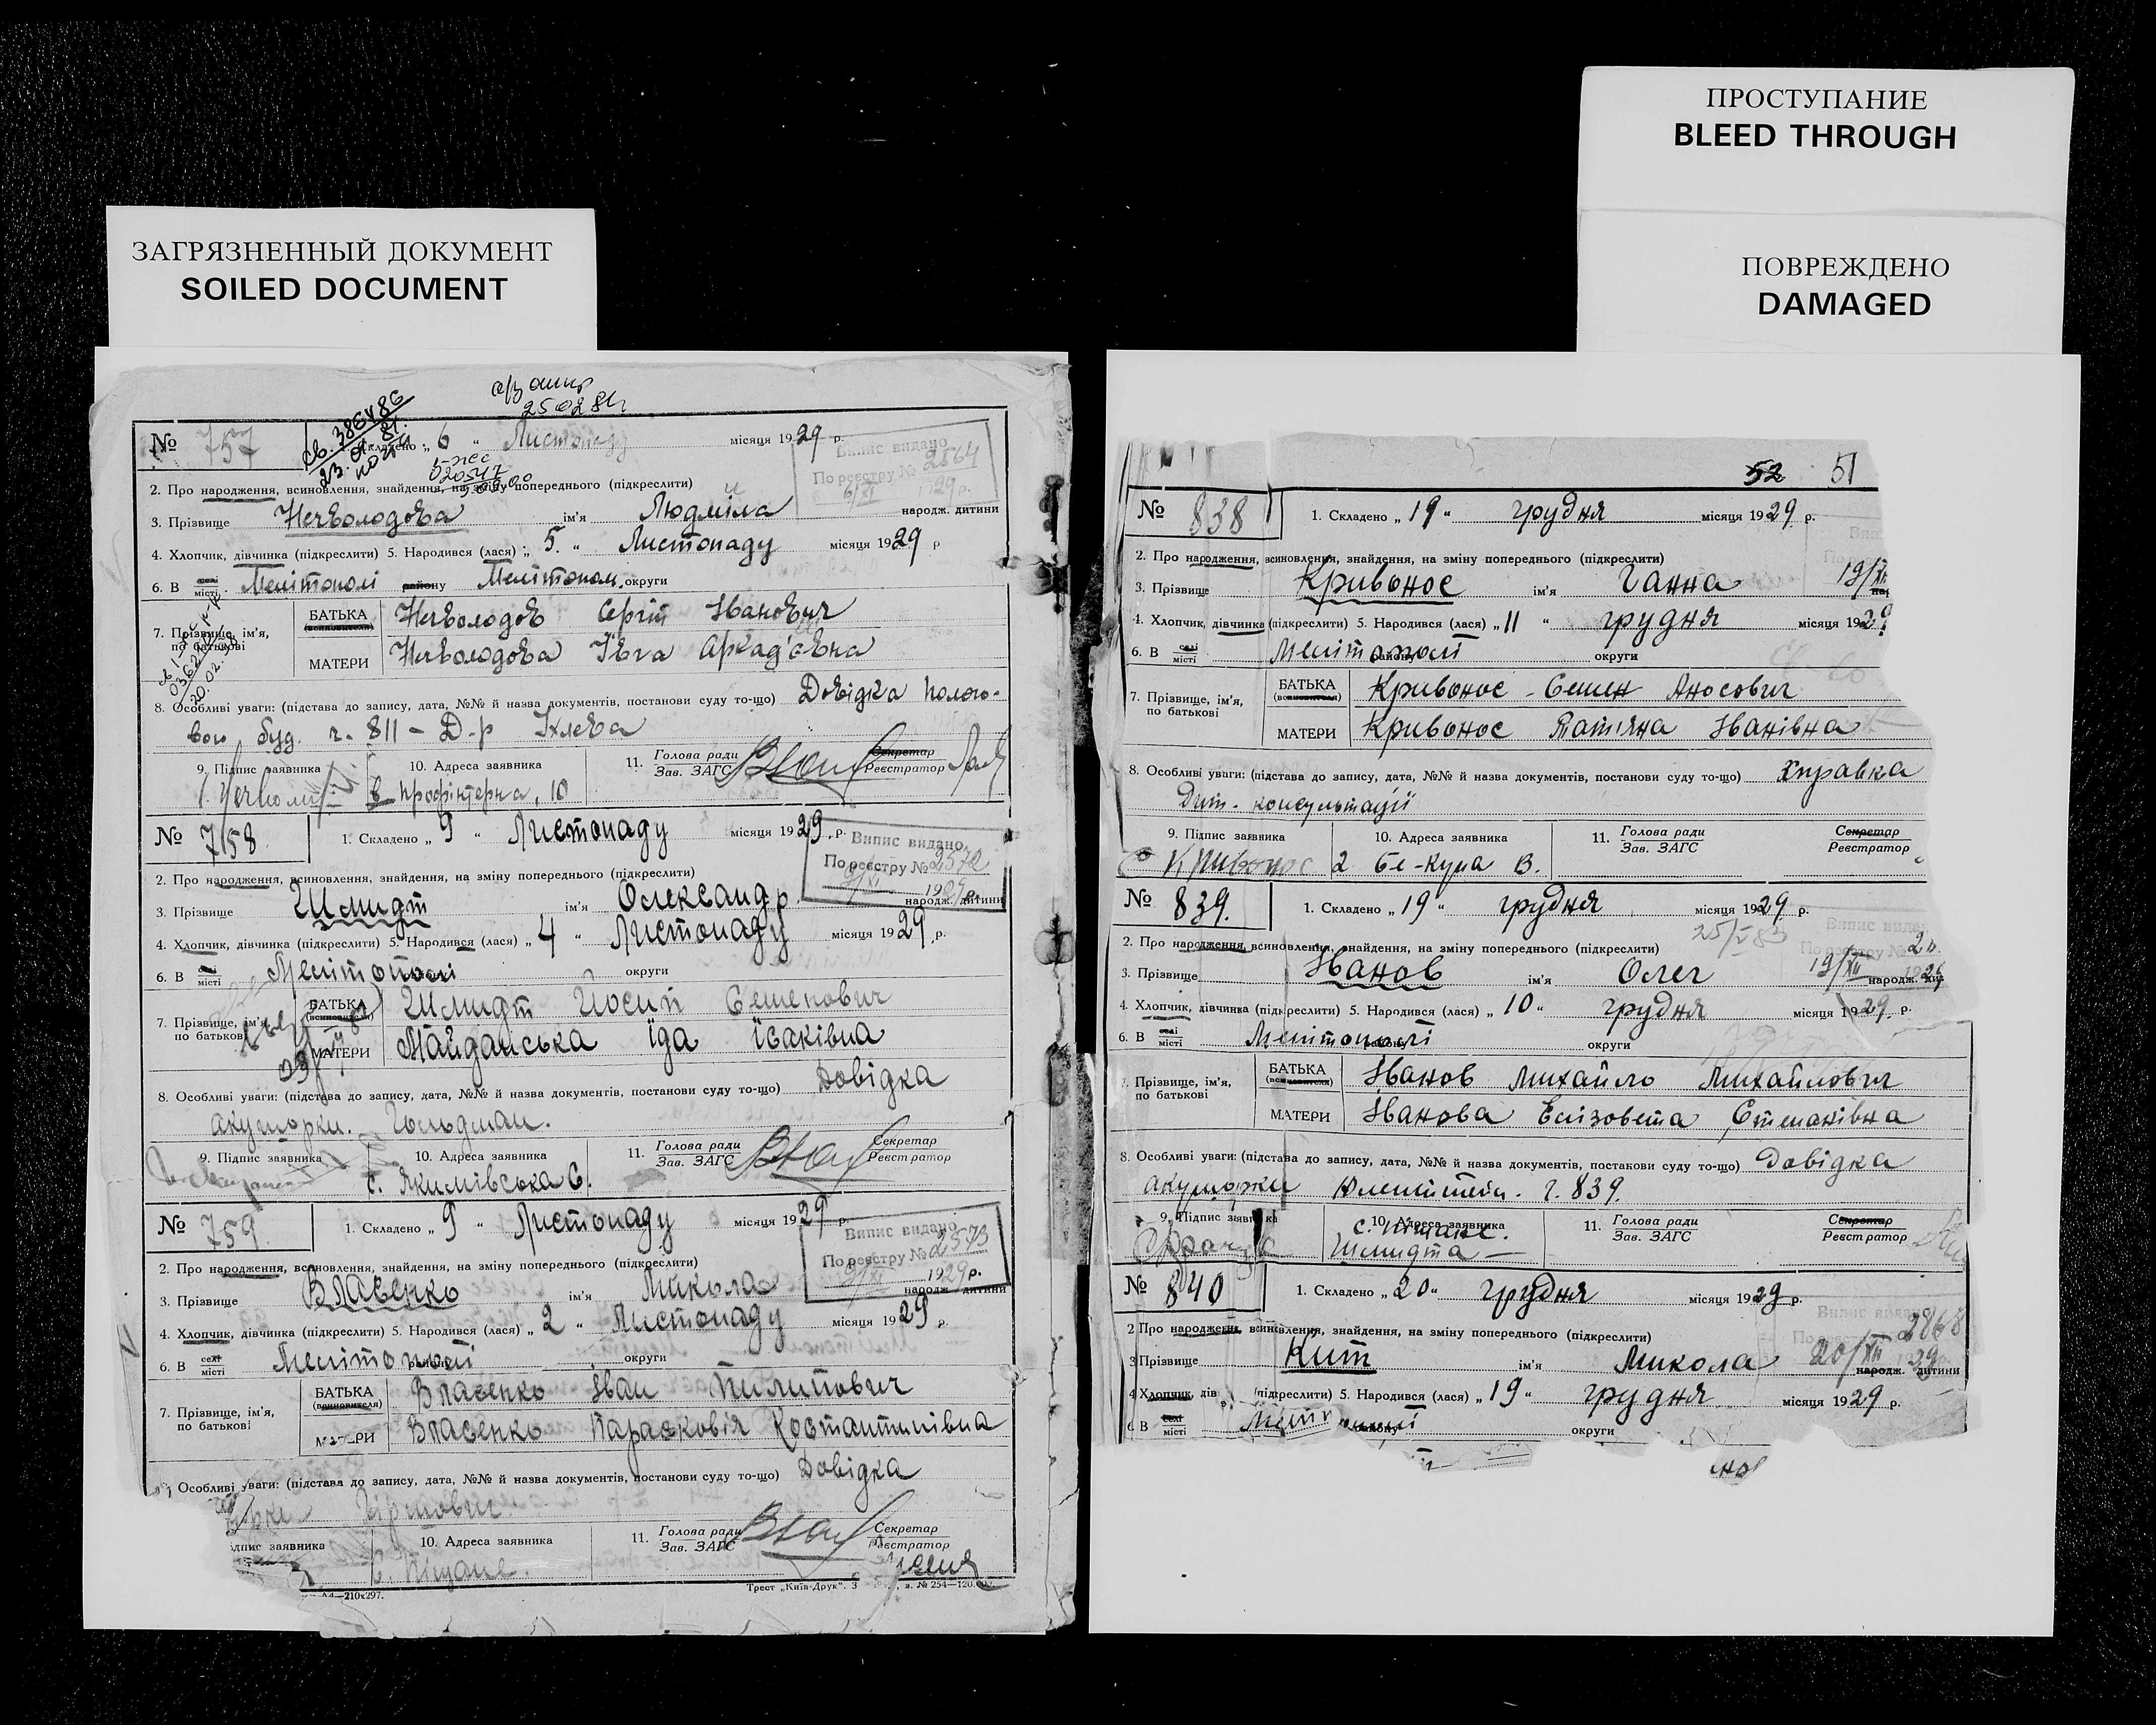 ЗАГРЯЗНЕННЫЙ ДОКУМЕНТ
SOILED DOCUMENT
25 02 81
№ 757
Складено „ 6 “ Листопаду місяця 1929 р.
Випис видано
По реєстру № 2564
6/XI 29 р.
2. Про народження, всиновлення, знайдення, на зміну попереднього (підкреслити)
3. Прізвище Нечволодова ім'я Людміла народж. дитини
4. Хлопчик, дівчинка (підкреслити) 5. Народився (лася) „ 5. “ Листопаду місяця 1929 р
6. В селі місті Мелітополі району Мелітопол. округи
7. Прізвище, ім'я, по батькові
БАТЬКА (всиновителя) Нечволодов Сергій Іванович
МАТЕРИ Нечволодова Ївга Аркад'євна
8. Особливі уваги: (підстава до запису, дата, №№ й назва документів, постанови суду то-що) Довідка Полого-
вого буд. ч. 811 – Д-р
9. Підпис заявника
10. Адреса заявника
Профінтерна, 10
11. Голова ради Зав. ЗАГС
Секретар Реєстратор
№ 758
1. Складено „ 9 “ Листопаду місяця 1929 р.
Випис видано
По реєстру № 2572
9/XI 1929 р.
2. Про народження, всиновлення, знайдення, на зміну попереднього (підкреслити)
3. Прізвище Шмидт ім'я Олександр народж. дитини
4. Хлопчик, дівчинка (підкреслити) 5. Народився (лася) „ 4 “ Листопаду місяця 1929 р.
6. В селі місті Мелітополі району округи
7. Прізвище, ім'я, по батькові
БАТЬКА (всиновителя) Шмидт Йосип Семенович
МАТЕРИ Майданська Їда Їсаківна
8. Особливі уваги: (підстава до запису, дата, №№ й назва документів, постанови суду то-що) Довідка
акушорки. Гольдман.
9. Підпис заявника
10. Адреса заявника
с. Якимівська 6.
11. Голова ради Зав. ЗАГС
Секретар Реєстратор
№ 759.
1. Складено „ 9 “ Листопаду місяця 1929 р.
Випис видано
По реєстру № 2573
9/XI 1929 р.
2. Про народження, всиновлення, знайдення, на зміну попереднього (підкреслити)
3. Прізвище Власенко ім'я Микола народж. дитини
4. Хлопчик, дівчинка (підкреслити) 5. Народився (лася) „ 2 “ Листопаду місяця 1929 р.
6. В селі місті Мелітополі району округи
7. Прізвище, ім'я, по батькові
БАТЬКА (всиновителя) Власенко Іван Пилипович
МАТЕРИ Власенко Парасковія Костантинівна
Особливі уваги: (підстава до запису, дата, №№ й назва документів, постанови суду то-що) Довідка
10. Адреса заявника
С. Піщане.
11. Голова ради Зав. ЗАГС
Секретар Реєстратор
А4—210х297.
Трест „Київ-Друк“. 3 з. № 254—120.000
ПРОСТУПАНИЕ
BLEED THROUGH
ПОВРЕЖДЕНО
DAMAGED
52 51
№ 838
1. Складено „ 19 “ грудня місяця 1929 р.
2. Про народження, всиновлення, знайдення, на зміну попереднього (підкреслити)
3. Прізвище Кривонос ім'я Ганна 19/XII
4. Хлопчик, дівчинка (підкреслити) 5. Народився (лася) „ 11 “ грудня місяця 1929
6. В селі місті Мелітополі району округи
7. Прізвище, ім'я, по батькові
БАТЬКА (всиновителя) Кривонос Семен Аносович
МАТЕРИ Кривонос Татіяна Іванівна
8. Особливі уваги: (підстава до запису, дата, №№ й назва документів, постанови суду то-що)
Дит. консультації
9. Підпис заявника
Кривонос
10. Адреса заявника
11. Голова ради Зав. ЗАГС
Секретар Реєстратор
№ 839.
1. Складено „ 19 “ грудня місяця 1929 р.
Випис видано
По реєстру №
25/V 83
19/XII
2. Про народження, всиновлення, знайдення, на зміну попереднього (підкреслити)
3. Прізвище Іванов ім'я Олег народж.
4. Хлопчик, дівчинка (підкреслити) 5. Народився (лася) „ 10 “ грудня місяця 1929 р.
6. В селі місті Мелітополі району округи
Прізвище, ім'я, по батькові
БАТЬКА (всиновителя) Іванов Михайло Михайлович
МАТЕРИ Іванова Елізовета Степанівна
8. Особливі уваги: (підстава до запису, дата, №№ й назва документів, постанови суду то-що) Довідка
акушорки ч. 839.
9. Підпис заявника
10. Адреса заявника
с. Піщане.
Шмидта —
11. Голова ради Зав. ЗАГС
Секретар Реєстратор
№ 840
1. Складено „ 20 “ грудня місяця 1929 р.
Випис видано
2868
20/XII 29
2 Про народження, всиновлення, знайдення, на зміну попереднього (підкреслити)
3 Прізвище Кит ім'я Микола народж. дитини
4 Хлопчик, дів (підкреслити) 5. Народився (лася) „ 19 “ грудня місяця 1929 р.
6 В селі місті району округи